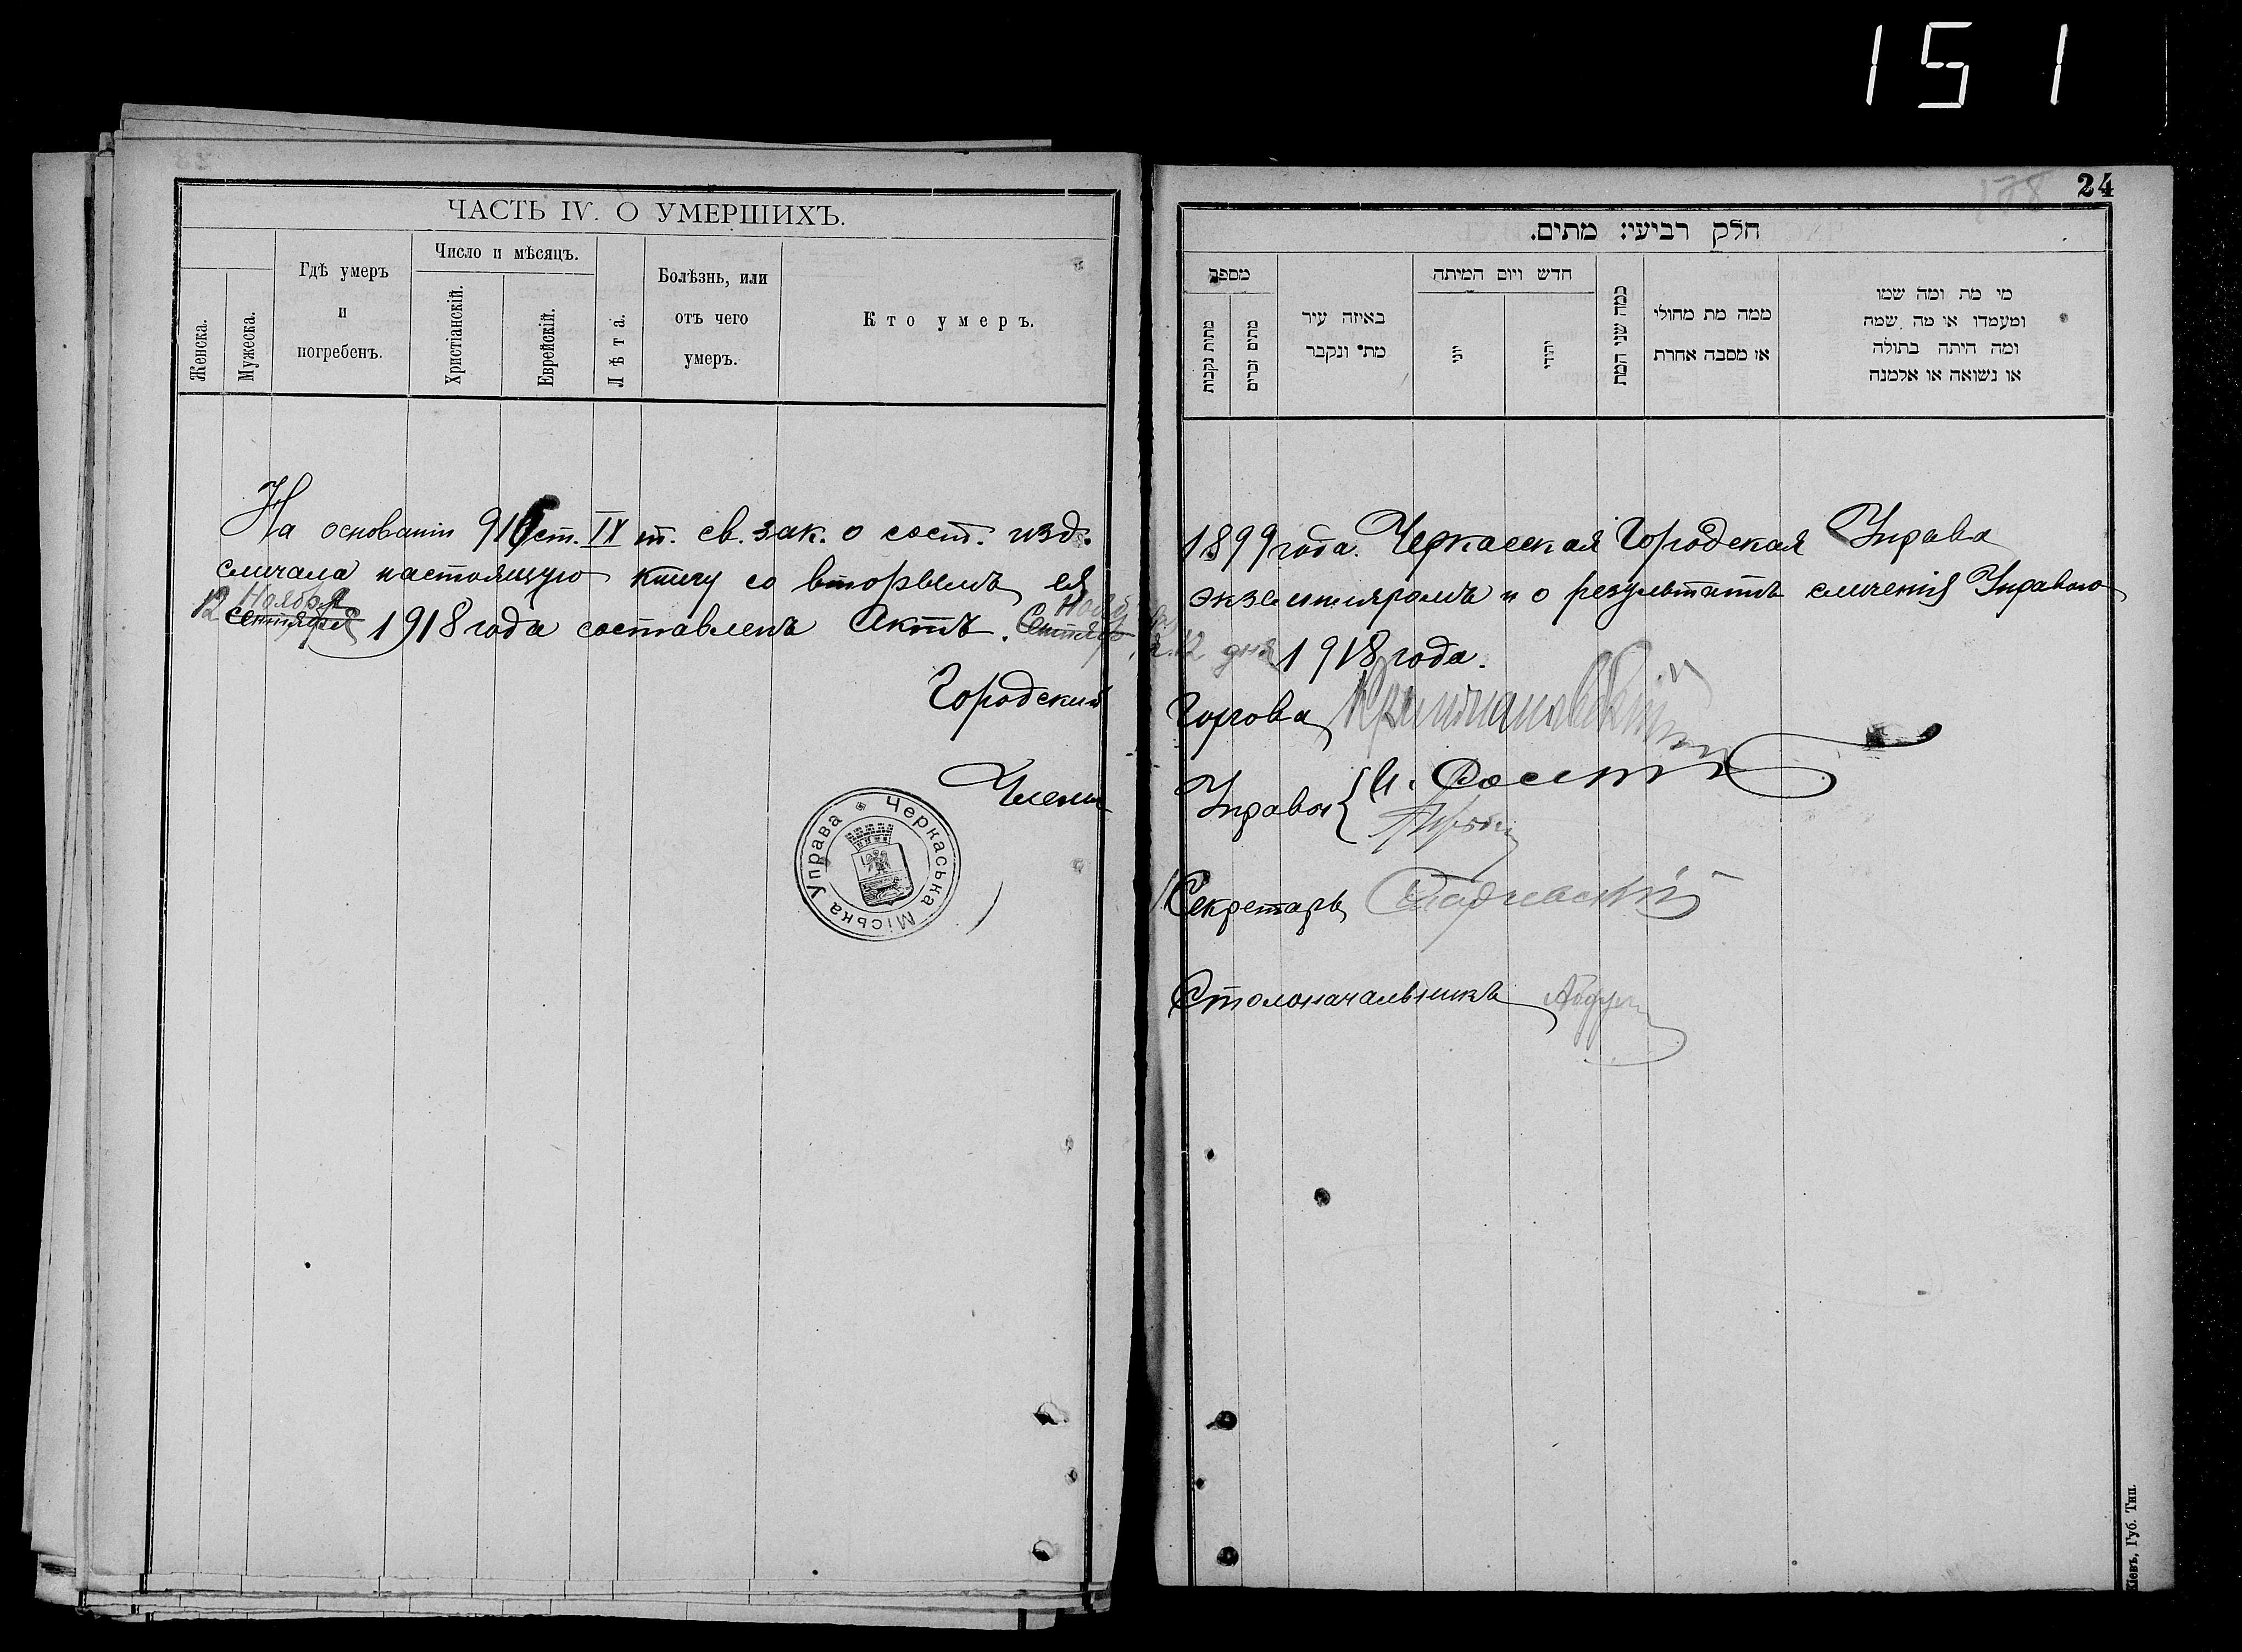 151
ЧАСТЬ IV. О УМЕРШИХЪ.
Женска.
Мужеска.
Гдѣ умеръ
и
погребенъ.
Число и мѣсяцъ.
Христіанскій.
Еврейскій.
Лѣта.
Болѣзнь, или
отъ чего
умеръ.
Кто умеръ.
На основаніи 916 ст. IX т. св. зак. о сост. изд.
сличала настоящую книгу со вторымъ ея
12 Ноября
сентября 1918 года составленъ Актъ. Сентяб
Городской
Члены
Черкаська Міська Управа
178
24
חלק רביעי: מתים.
מספר
מתות נקבות
מתים זכרים
באיזה עיר
מת ונקבר
חדש ויום המיתה
יוני
יהודי
כמה שני המת
ממה מת מחולי
או מסבה אחרת
מי מת ומה שמו
ומעמדו או מה שמה
ומה היתה בתולה
או נשואה או אלמנה
1899 года. Черкасская Городская Управа
экземпляромъ и о результатѣ сличенія Управою
12 дня 1918 года.
Голова
Управы
Секретарь
Столоначальникъ
Кіевъ, Губ. Тип.